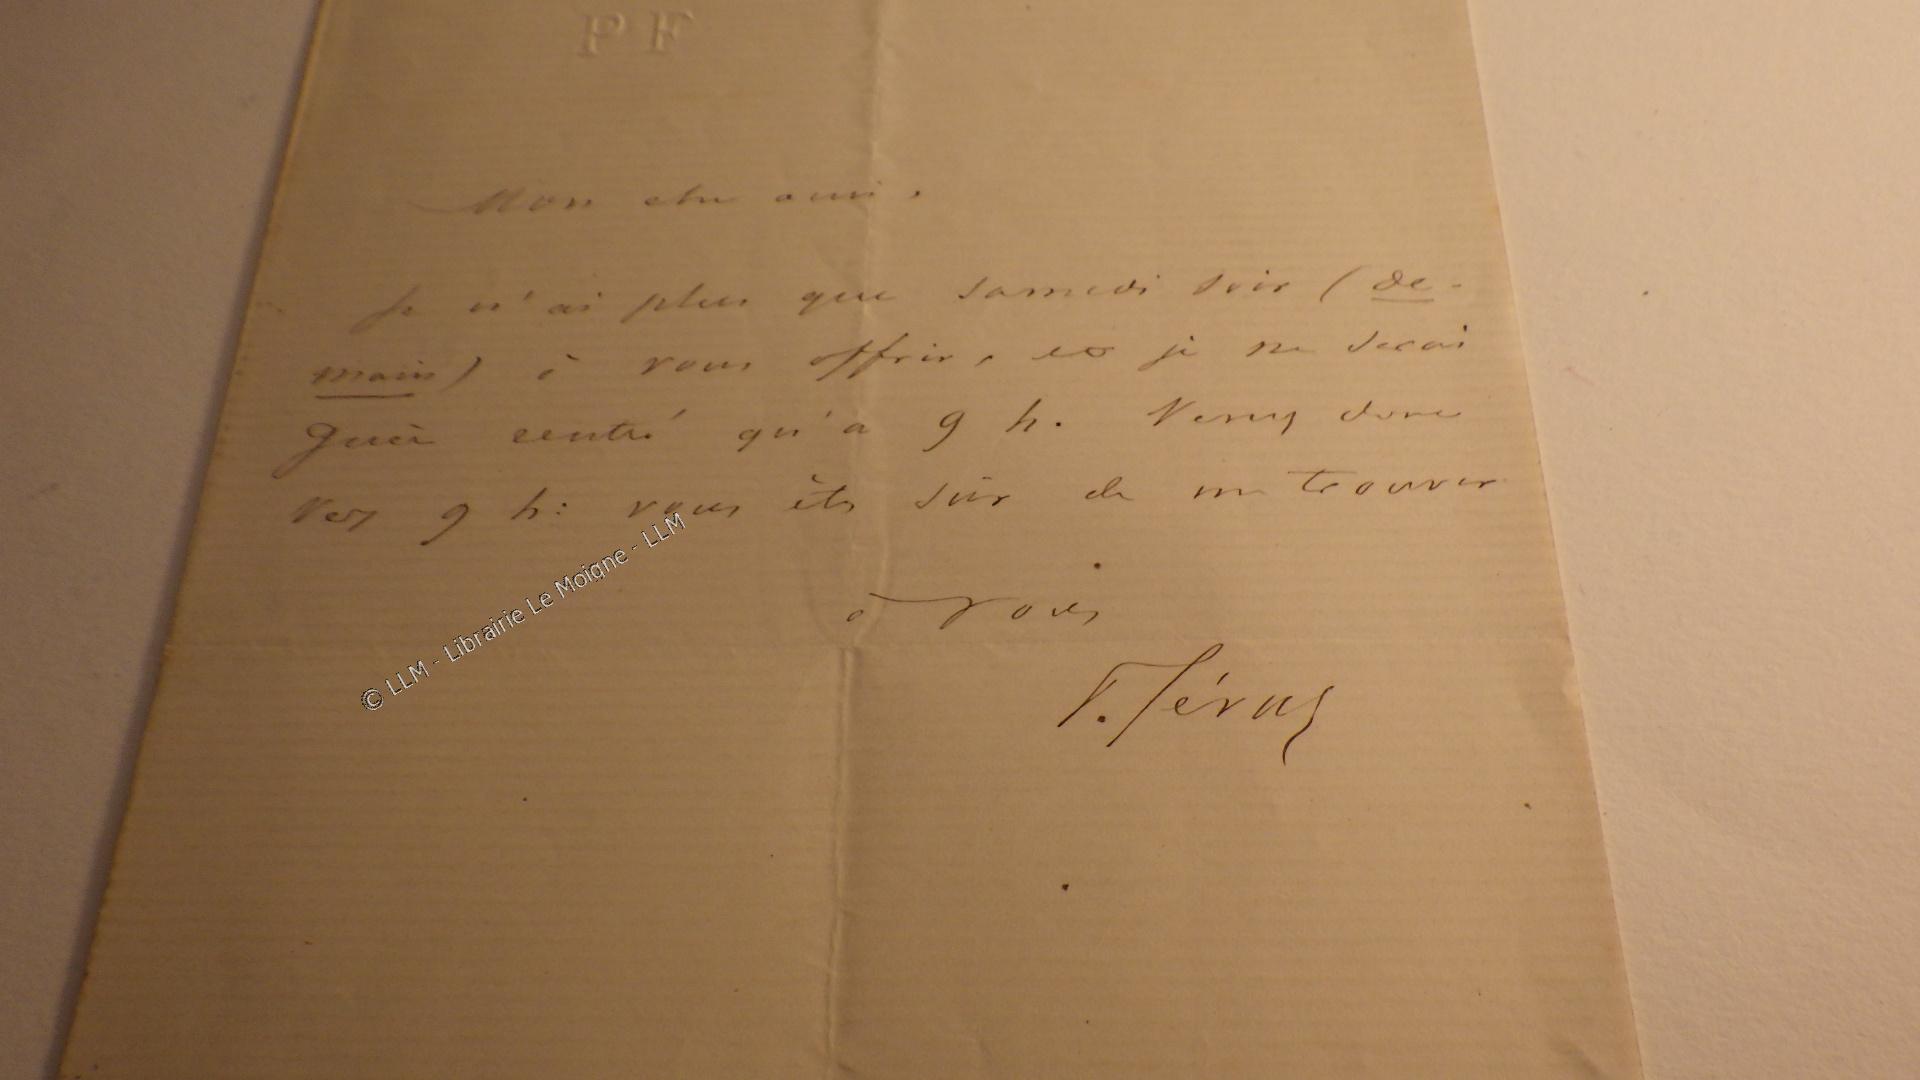 PF
Mon cher ami,
Je n'ai plus que samedi soir (de-
main) à vous offrir, et je ne serai
guère rentré qu'à 9 h. Venez donc
vers 9 h: vous êtes sûr de me trouver
à vous
© LLM - Librairie Le Moigne - LLM
P. Féval